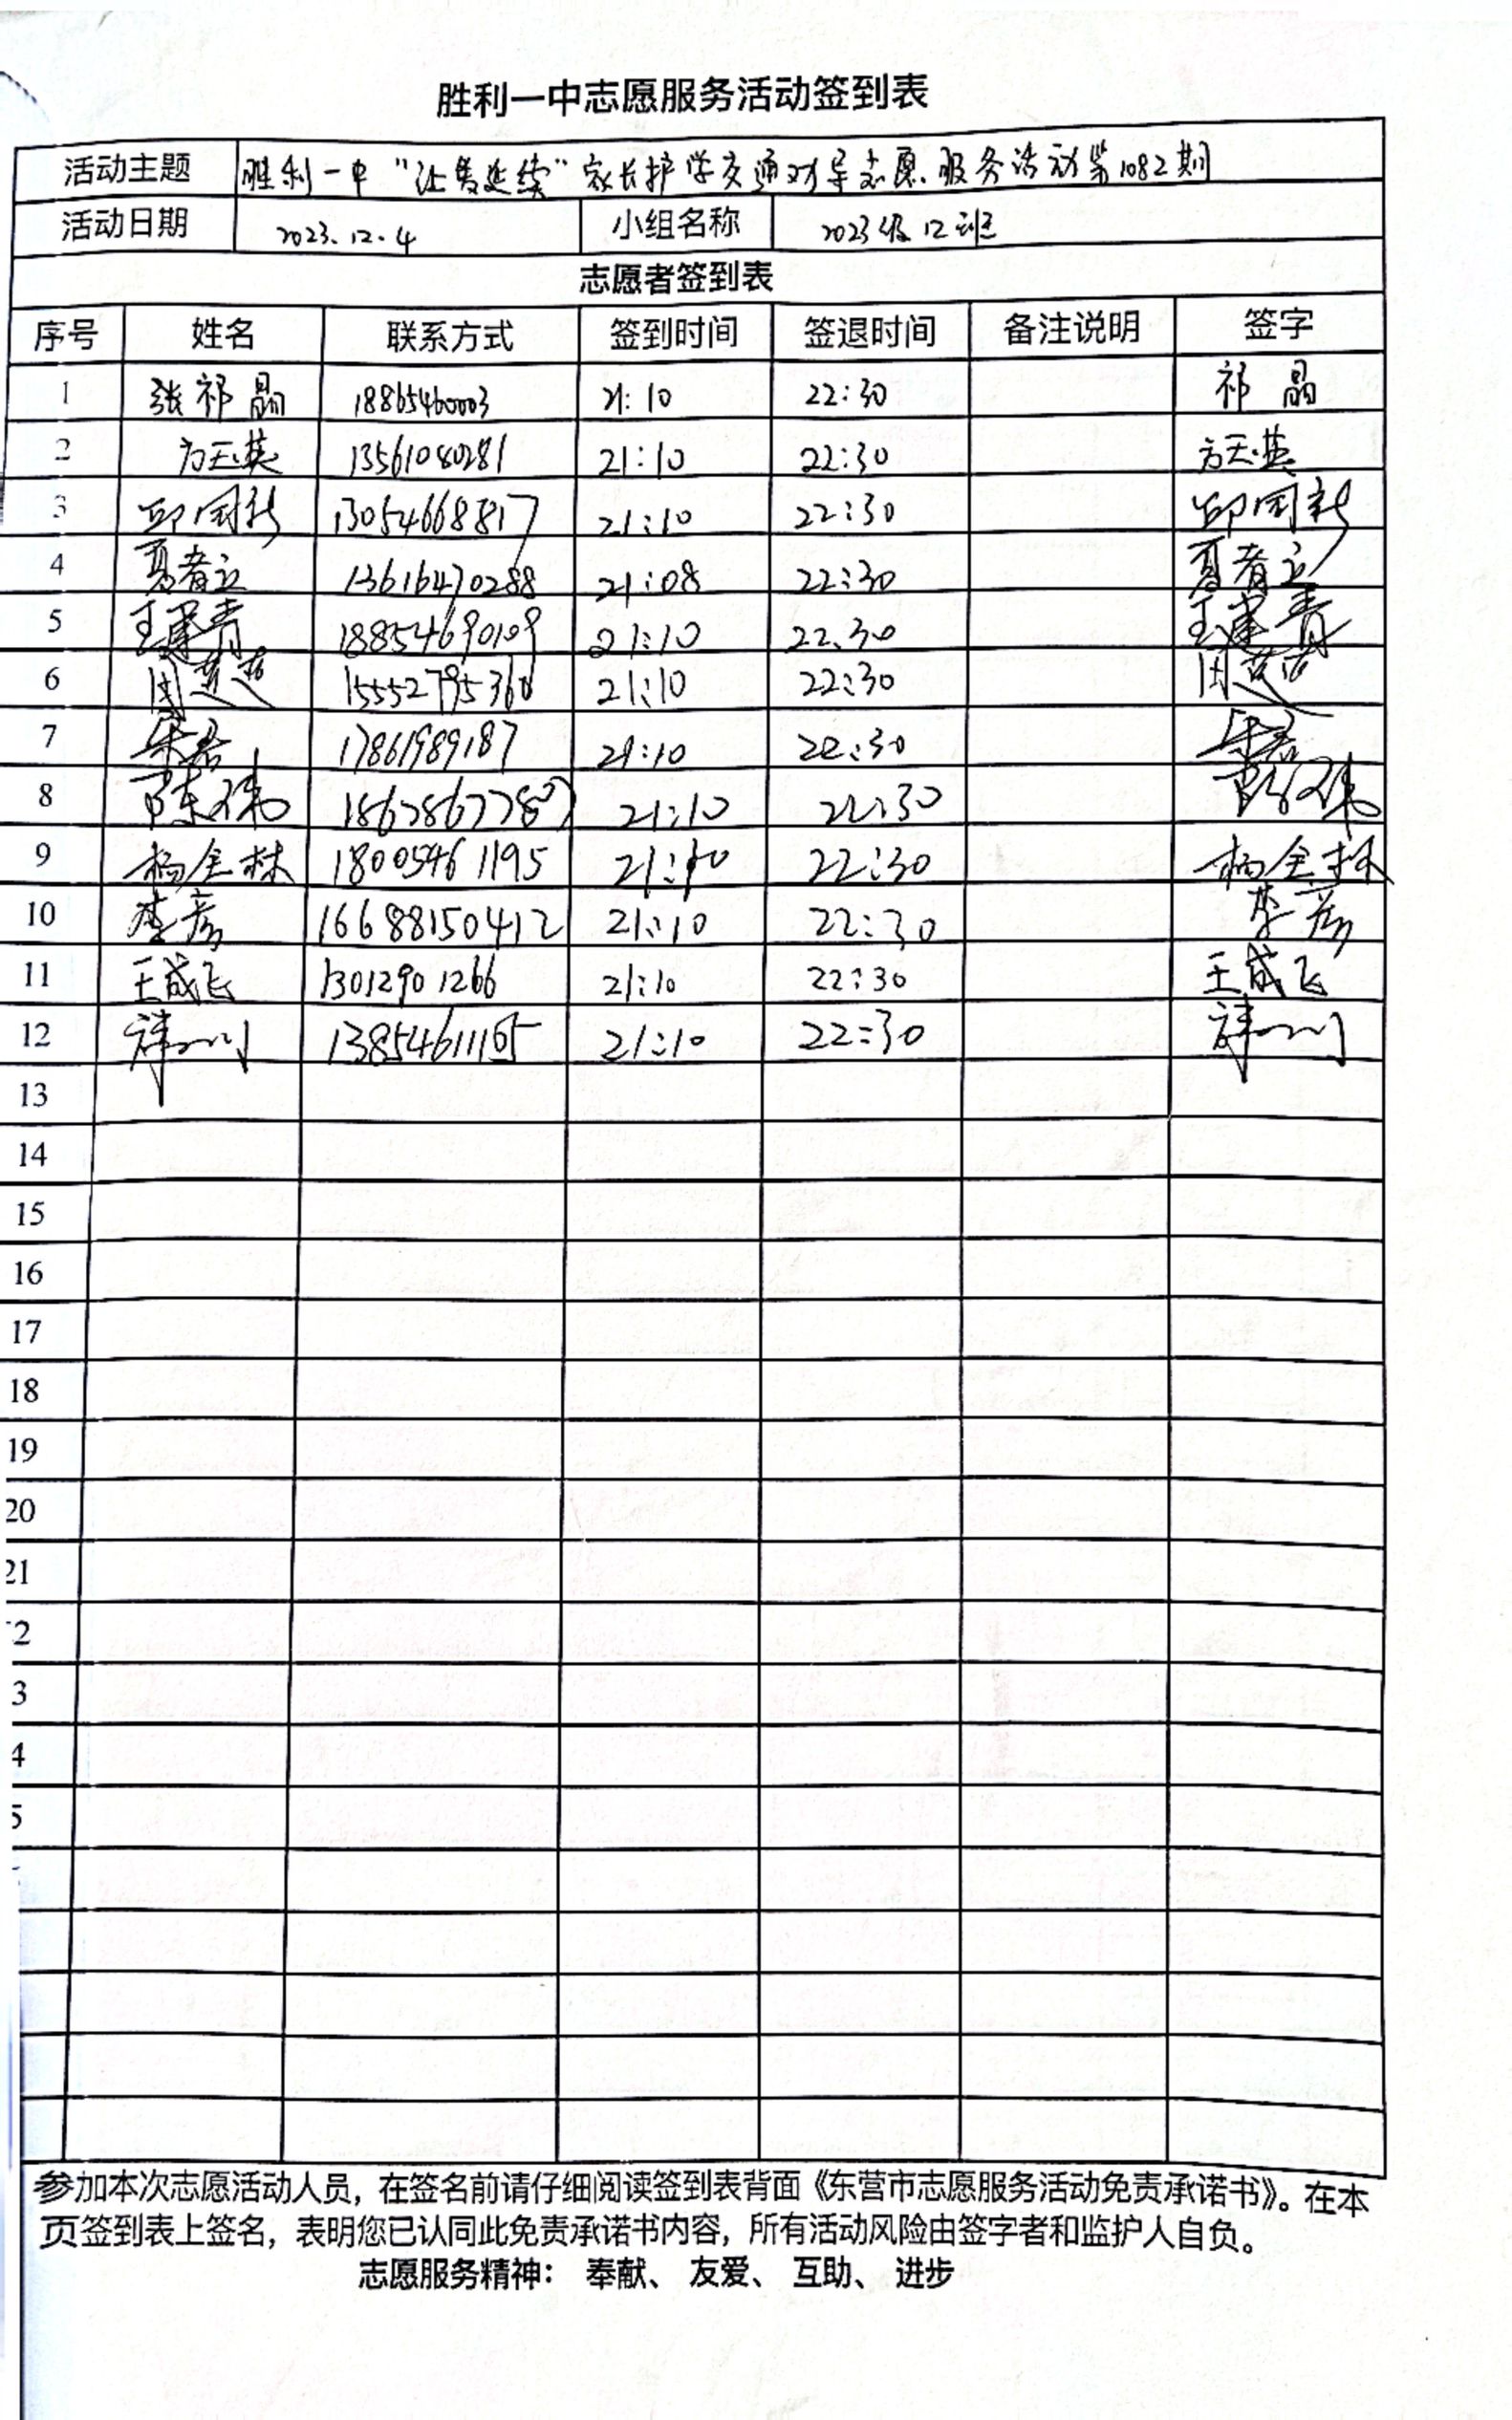 胜利一中志愿服务活动签到表
活动主题 胜利一中“让爱延续”家长护学交通劝导志愿服务活动第1082期
活动日期 2023.12.4 小组名称 2023级12班
志愿者签到表
序号 姓名 联系方式 签到时间 签退时间 备注说明 签字
1 张祁晶 18865460003 21:10 22:30 祁晶
2 方玉英 13561080281 21:10 22:30 方玉英
3 邱国新 13054668817 21:10 22:30 邱国新
4 13616470288 21:08 22:30
5 王建青 18854690109 21:10 22:30 王建青
6 周 15552795360 21:10 22:30 周
7 朱君 17861989187 21:10 22:30 朱君
8 陈伟 18678677787 21:10 22:30 陈伟
9 杨金林 18005461195 21:10 22:30 杨金林
10 李彦 16688150412 21:10 22:30 李彦
11 王成飞 13012901266 21:10 22:30 王成飞
12 13854611165 21:10 22:30
13
14
15
16
17
18
19
20
21
2
3
4
5
参加本次志愿活动人员，在签名前请仔细阅读签到表背面《东营市志愿服务活动免责承诺书》。在本
页签到表上签名，表明您已认同此免责承诺书内容，所有活动风险由签字者和监护人自负。
志愿服务精神： 奉献、 友爱、 互助、 进步